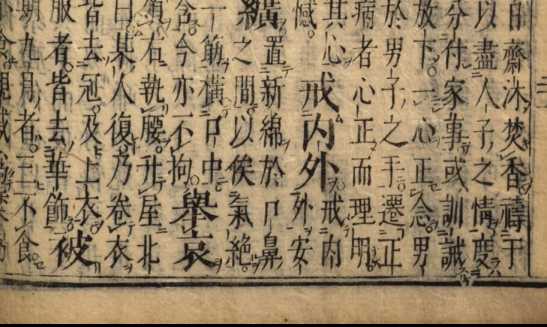 日齋沐焚香禱于
以盡人子之情度
分付家事或訓誡
放下一心正念男
於男子之手遷正
病者心正而理明
其心戒內外戒內
憾外安
纊置新綿於口鼻
之間以俟氣絕
一筯橫口中
含今亦不拘舉哀
領右執腰升屋北
曰某人復乃卷衣
皆去冠及上衣被
服者皆去華飾
期九月者三不食